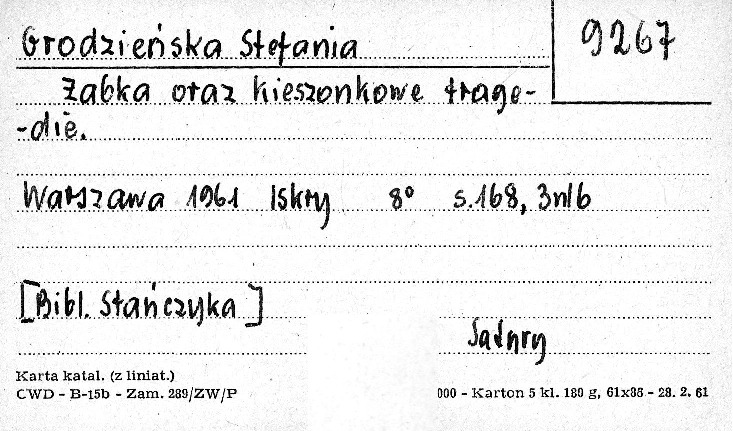 Grodzieńska Stefania
9267
Żabka oraz kieszonkowe trage-
-die.
Warszawa 1961 Iskry 8° s.168, 3nlb
[Bibl. Stańczyka]
Satyry
Karta katal. (z liniat.)
CWD - B-15b - Zam. 289/ZW/P
000 - Karton 5 kl. 180 g, 61x86 - 28. 2. 61